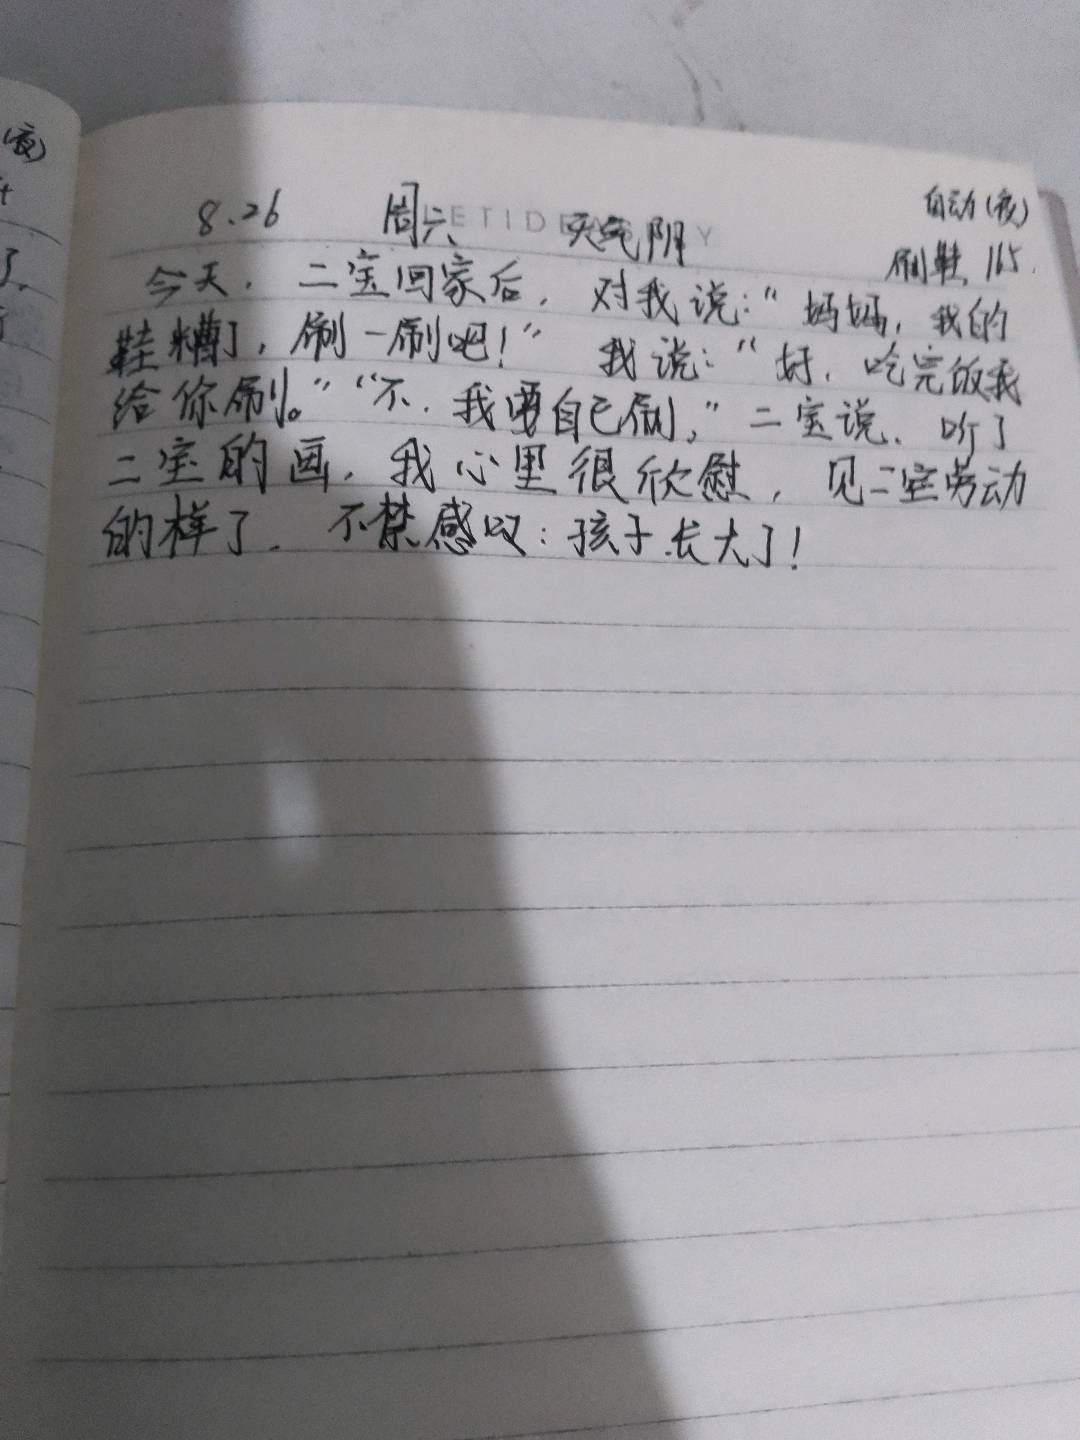 (夜)
自动(夜)
8.26 周六 天气阴
刷鞋 165.
今天，二宝回家后，对我说：“妈妈，我的
鞋糟了，刷一刷吧！” 我说：“好，吃完饭我
给你刷。”“不，我要自己刷，”二宝说，听了
二宝的画，我心里很欣慰，见二宝劳动
的样了，不禁感叹：孩子长大了！